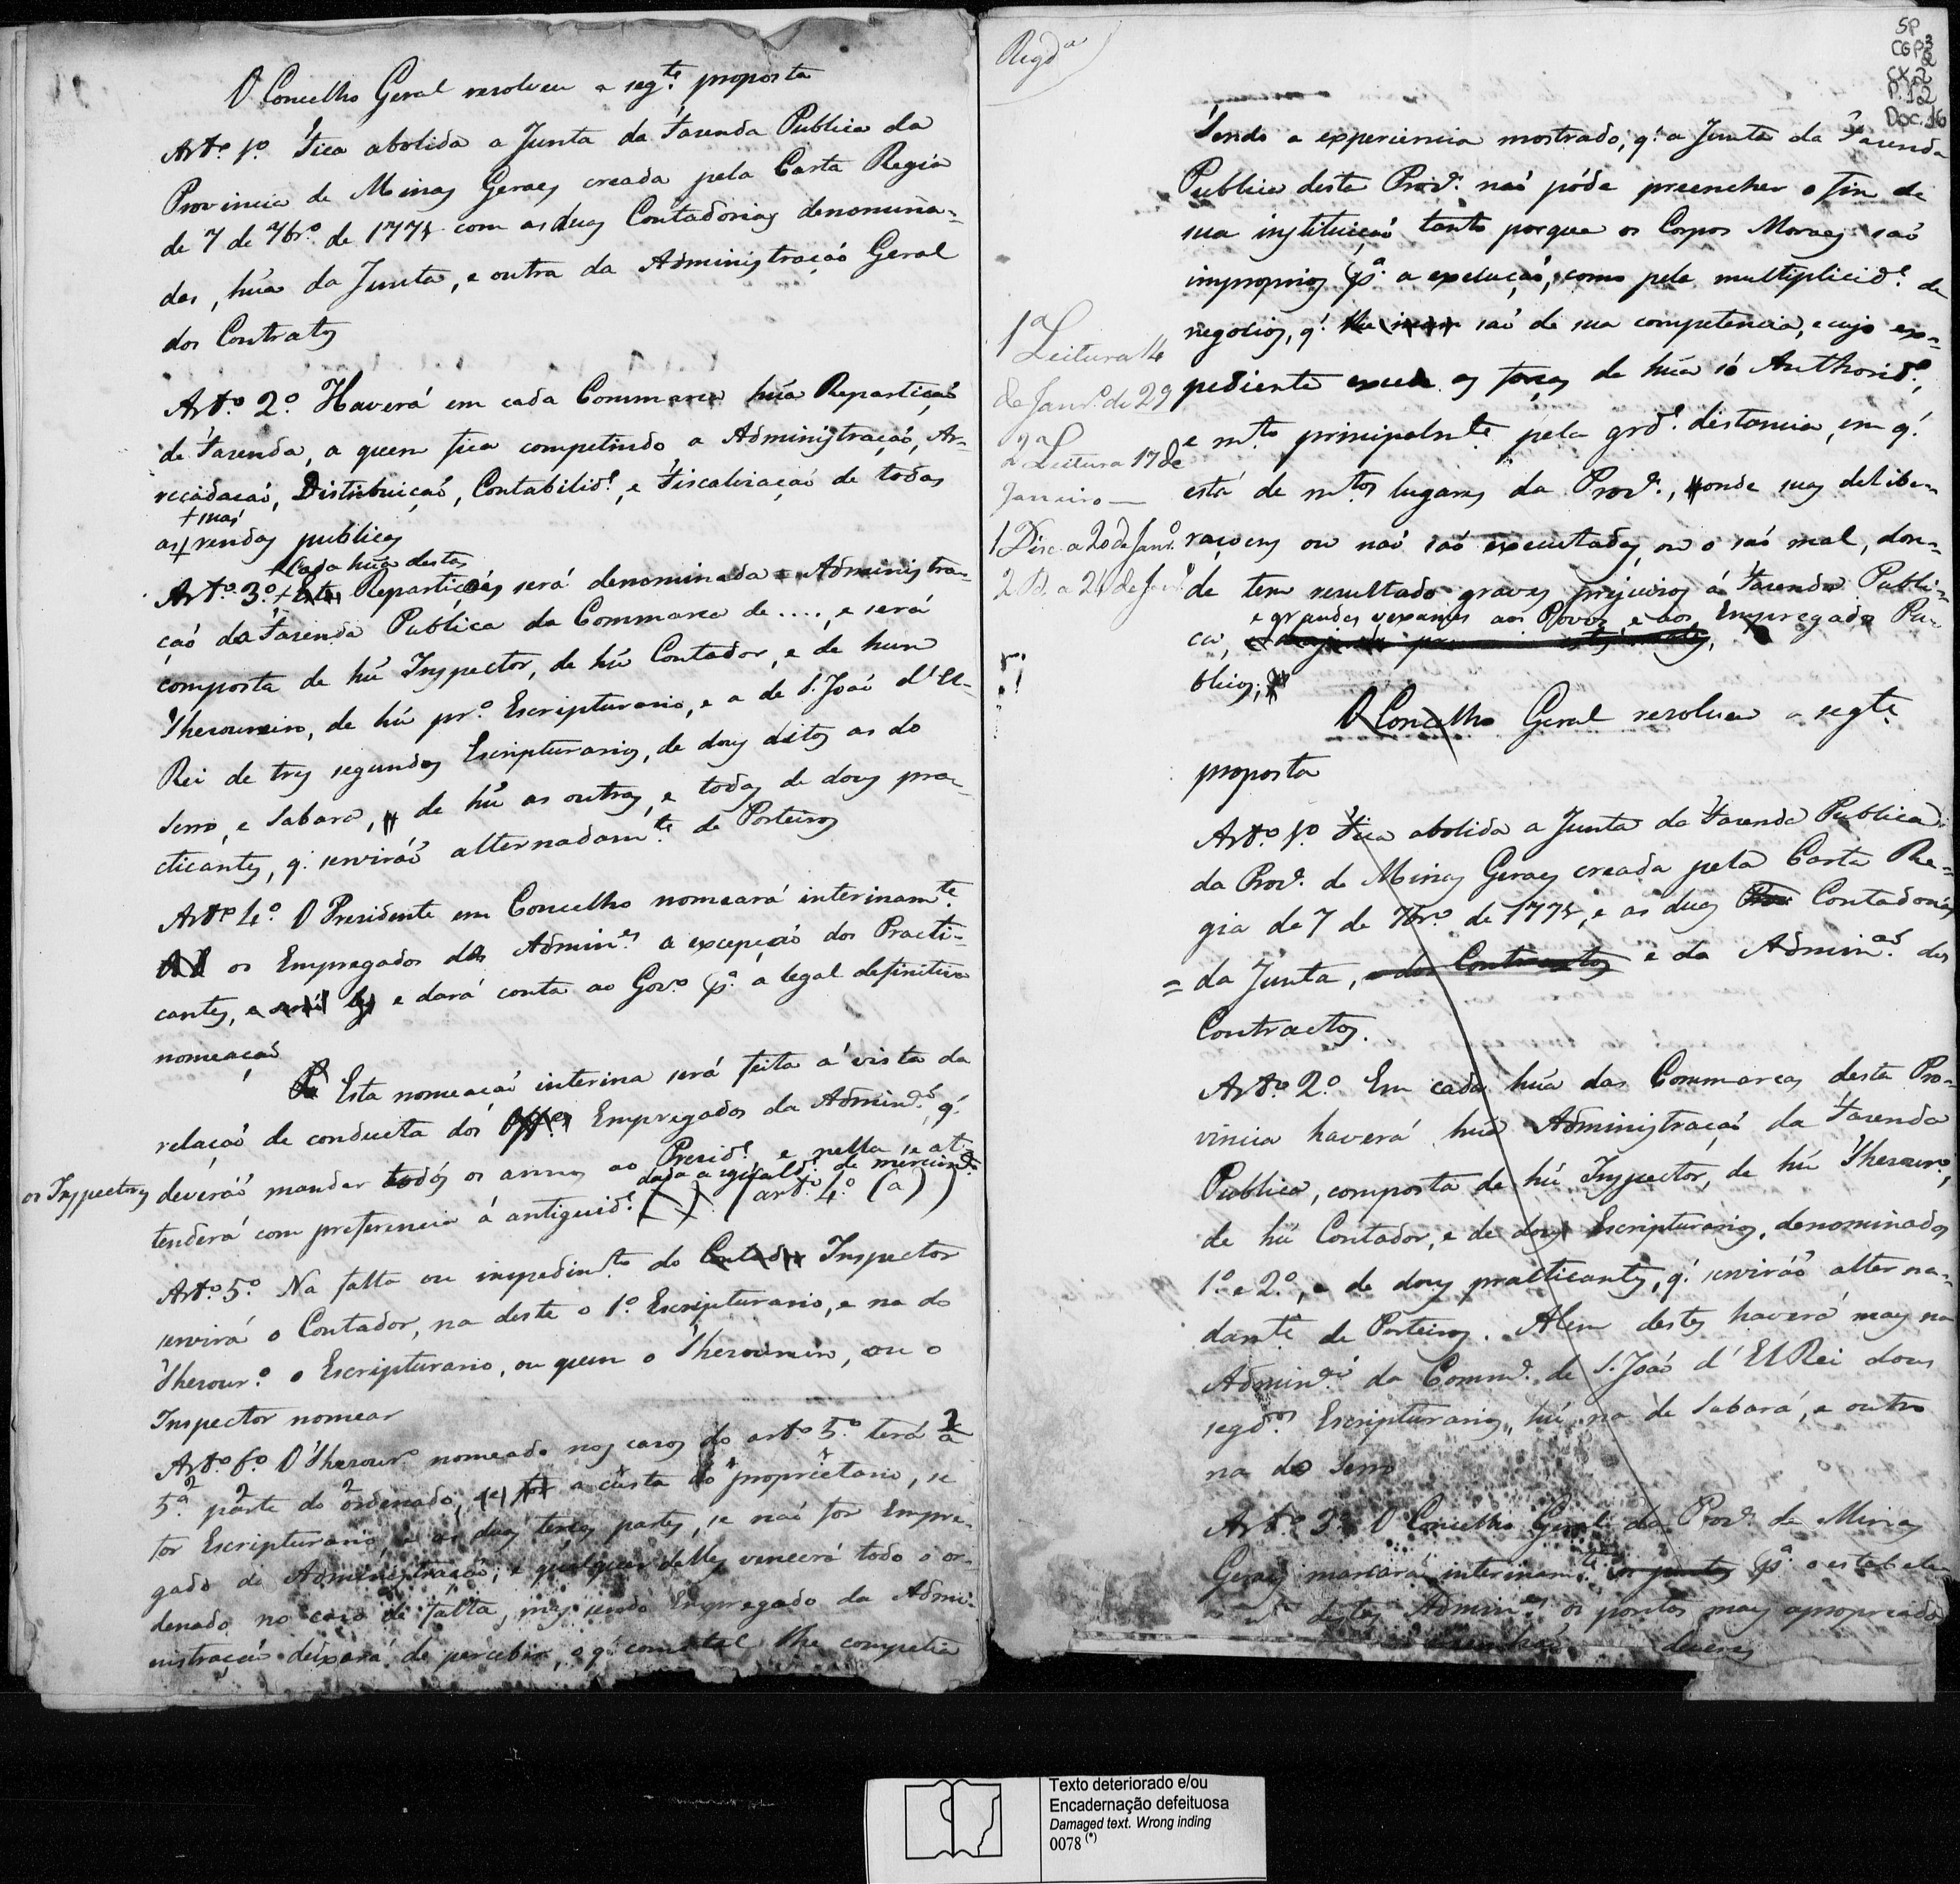 O Concelho Geral resolveu a seg.te proposta
Art.o 1.o Fica abolida a Junta da Fazenda Publica da
Provincia de Minas Geraes creada pela Carta Regia
de 7 de 7br.o de 1771 com as duas Contadorias denomina-
das, hũa da Junta, e outra da Administração Geral
dos Contratos
Art.o 2.o Haverá em cada Commarca hũa Repartição
de Fazenda, a quem fica competindo a Administração, Ar-
recadação, Distribuição, Contabilid.e, e Fiscalização de todas
+ mas
as + rendas publicas
Cada hũa destas
Art.o 3.o + Repartições será denominada = Administra-
ção da Fazenda Publica da Commarca de ...., e será
composta de hũ Inspector, de hũ Contador, e de hum
Thesoureiro, de hũ pr.o Escripturario, e a de S. João d'El-
Rei de tres segundos Escripturarios, de dous ditos as do
Serro, e Sabará, de hũ as outras, e todas de dous pra-
cticantes, q.' servirão alternadam.te de Porteiros
Art.o 4.o O Presidente em Concelho nomeará interinam.te
os Empregados das Admin.es a excepção dos Practi-
cantes, e dará conta ao Gov.o p.a a legal definitiva
nomeação
Esta nomeação interina será feita á vista da
relação de conducta dos Empregados da Admin.ão, q.'
os Inspectores deverão mandar todos os annos ao Presid.e, e nella se at-
dada a iguald.e de merecim.to
tenderá com preferencia á antiguid.e (art.o 4.o (a))
Art.o 5.o Na falta ou impedim.to do Contador Inspector
servirá o Contador, na deste o 1.o Escripturario, e na do
Thesour.o o Escripturario, ou quem o Thesoureiro, ou o
Inspector nomear
Art.o 6.o O Thesour.o nomeado nos casos do art.o 5.o terá a
5.a parte do ordenado, a custa do proprietario, se
for Escripturario, e as duas terças partes, se não for Empre-
gado da Administração, e qualquer delles vencerá todo o or-
denado no caso de falta, mas sendo Empregado da Admi-
nistração deixará de perceber, o q.' como tal lhe competia
Regd.a
SP
CGP2
CX.2
P.12
Doc.16
Tendo a experiencia mostrado, q.' a Junta da Fazenda
Publica desta Prov.a não póde preencher o fim de
sua instituição tanto porque os Corpos Moraes são
improprios p.a a execução, como pela multiplicid.e de
negocios, q.' são de sua competencia, e cujo ex-
pediente excede as forças de hũa só Authorid.e,
e m.to principalm.te pela grd.e distancia, em q.'
está de m.tos lugares da Prov.a, onde suas delibe-
rações ou não são executadas, ou o são mal, don-
de tem resultado graves prejuizos á Fazenda Publi-
e grandes vexames aos Povos, e aos Empregados Pu-
ca,
blicos;
1.a Leitura 14
de Janr.o de 29
2.a Leitura 17 de
Janeiro —
1 Disc. a 20 de Janr.o
2 D. a 21 de Janr.o
O Concelho Geral resolveu a seg.te
proposta
Art.o 1.o Fica abolida a Junta da Fazenda Publica
da Prov.a de Minas Geraes creada pela Carta Re-
gia de 7 de 7br.o de 1771, e as duas Contadorias
= da Junta, e dos Contractos e da Admin.ão dos
Contractos.
Art.o 2.o Em cada hũa das Commarcas desta Pro-
vincia haverá hũa Administração da Fazenda
Publica, composta de hũ Inspector, de hũ Thesour.o,
de hũ Contador, e de dous Escripturarios, denominados
1.o e 2.o, e de dous practicantes, q.' servirão alterna-
dam.te de Porteiros. Alem destes haverá mais na
Admin.ão da Comm.a de S. João d'El Rei dous
segd.os Escripturarios, hũ na de Sabará, e outro
na do Serro
Art.o 3.o O Concelho Geral da Prov.a de Minas
Geraes marcará interinam.te p.a o estabele-
destas Admin.es os pontos mais apropreados
deveres
Texto deteriorado e/ou
Encadernação defeituosa
Damaged text. Wrong inding
0078 (*)